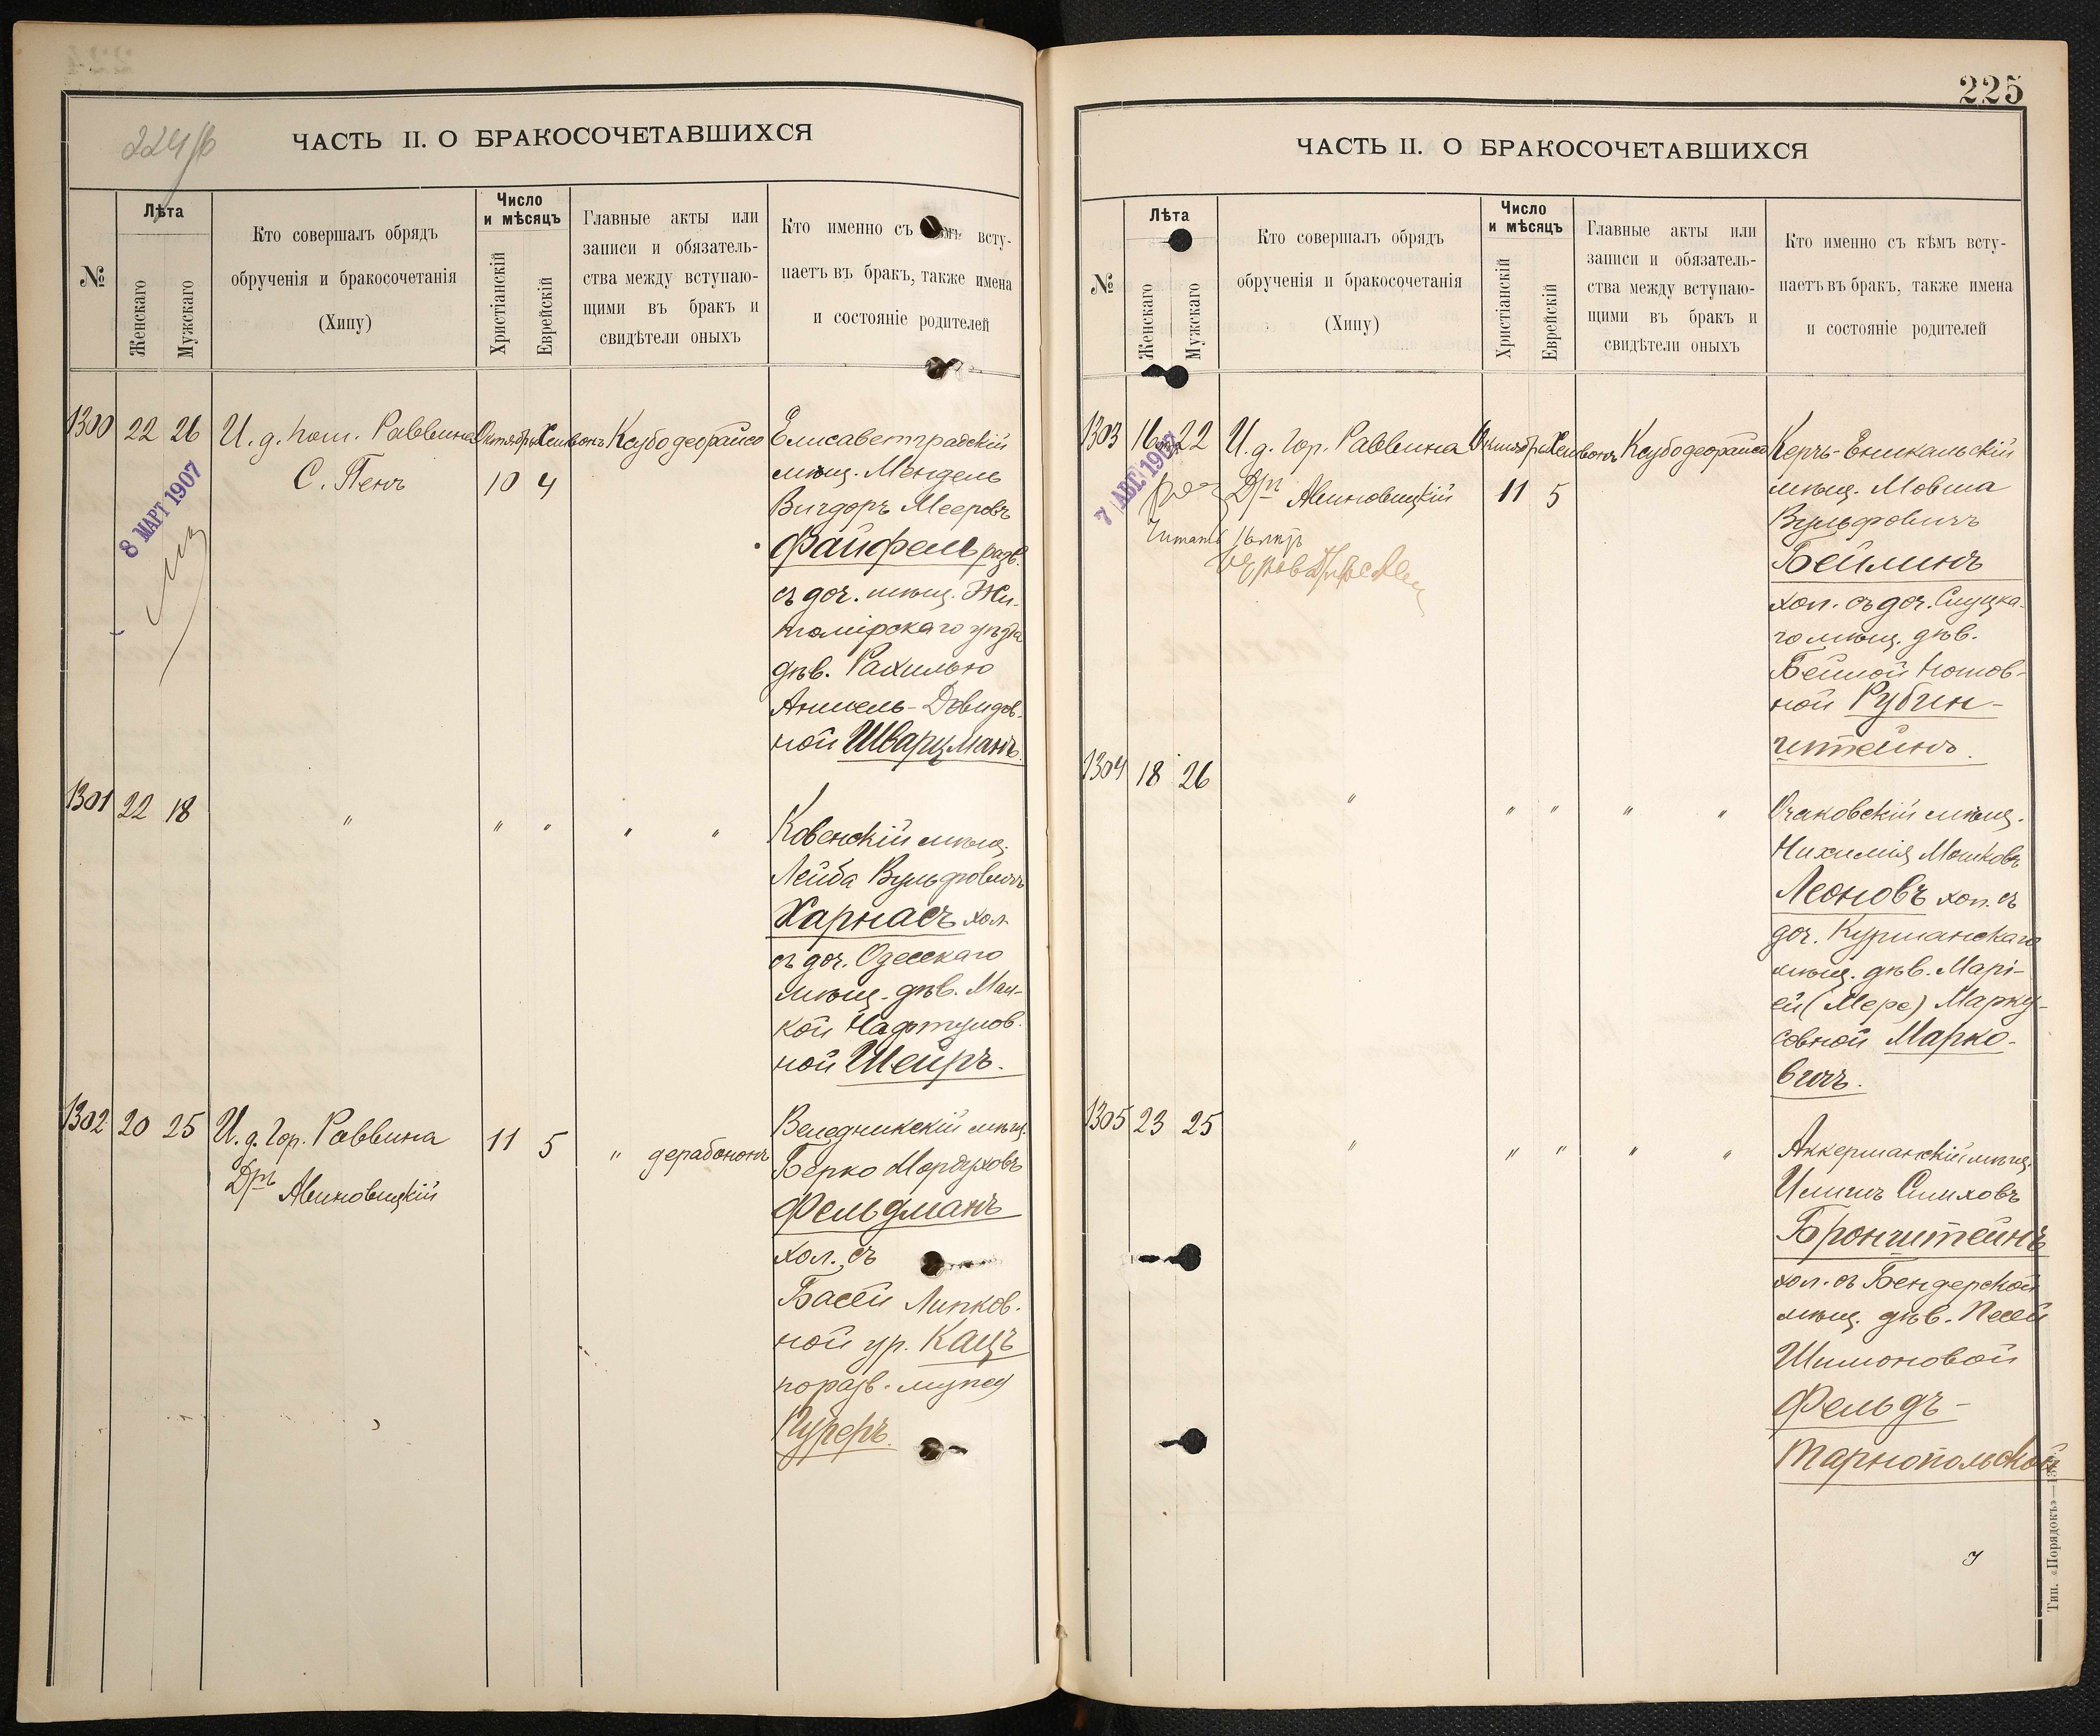 224/б
ЧАСТЬ II. О БРАКОСОЧЕТАВШИХСЯ
№
Лѣта
Женскаго
Мужскаго
Кто совершалъ обрядъ
обрученія и бракосочетанія
(Хипу)
Число
и мѣсяцъ
Христіанскій
Еврейскій
Главные акты или
записи и обязатель-
ства между вступаю-
щими въ бракъ и
свидѣтели оныхъ
Кто именно съ всту-
паетъ въ бракъ, также имена
и состояніе родителей
1300 22 26 И. д. пом. Раввина Октябрь Хешвонъ Ксубо деорайсо
С. Пенъ 10 4
8 МАРТ 1907
Елисаветградскій
мѣщ. Мендель
Вигдоръ Мееровъ
Файфель разв.
съ доч. мѣщ. Жи-
томірскаго уѣзда
дѣв. Рахилью
Аншель-Довидов-
ной Шварцманъ.
1301 22 18 " " " " "
Ковенскій мѣщ.
Лейба Вульфовичъ
Харнасъ хол.
съ доч. Одесскаго
мѣщ. дѣв. Мал-
кой Нафтулов-
ной Шейръ.
1302 20 25 И. д. Гор. Раввина 11 5 " дерабононъ
Дръ Авиновицкій
Веледникскій мѣщ.
Берко Мордуховъ
Фельдманъ
хол. съ
Басей Липков-
ной ур. Кацъ
по разв. мужу
225
ЧАСТЬ II. О БРАКОСОЧЕТАВШИХСЯ
№
Лѣта
Женскаго
Мужскаго
Кто совершалъ обрядъ
обрученія и бракосочетанія
(Хипу)
Число
и мѣсяцъ
Христіанскій
Еврейскій
Главные акты или
записи и обязатель-
ства между вступаю-
щими въ бракъ и
свидѣтели оныхъ
Кто именно съ кѣмъ всту-
паетъ въ бракъ, также имена
и состояніе родителей
1303 16 22 И. д. Гор. Раввина Октябрь Хешвонъ Ксубо деорайсо
Дръ Авиновицкій 11 5
7 АВГ. 1907
Читать
Керчь-Еникальскій
мѣщ. Мовша
Вульфовичъ
Бейлинъ
хол. съ доч. Слуцка-
го мѣщ. дѣв.
Бейлой Нотов-
ной Рубин-
штейнъ.
1304 18 26 " " " " "
Очаковскій мѣщ.
Нихимія Мошковъ
Леоновъ хол. съ
доч. Курманскаго
мѣщ. дѣв. Марі-
ей (Мере) Марку-
совной Марко-
вичъ.
1305 23 25 " " " " "
Аккерманскій мѣщ.
Илишъ Симховъ
Бронштейнъ
хол. съ Бендерской
мѣщ. дѣв. Песей
Шимоновой
Фельдъ-
Тарнопольской
Тип. «Порядокъ»